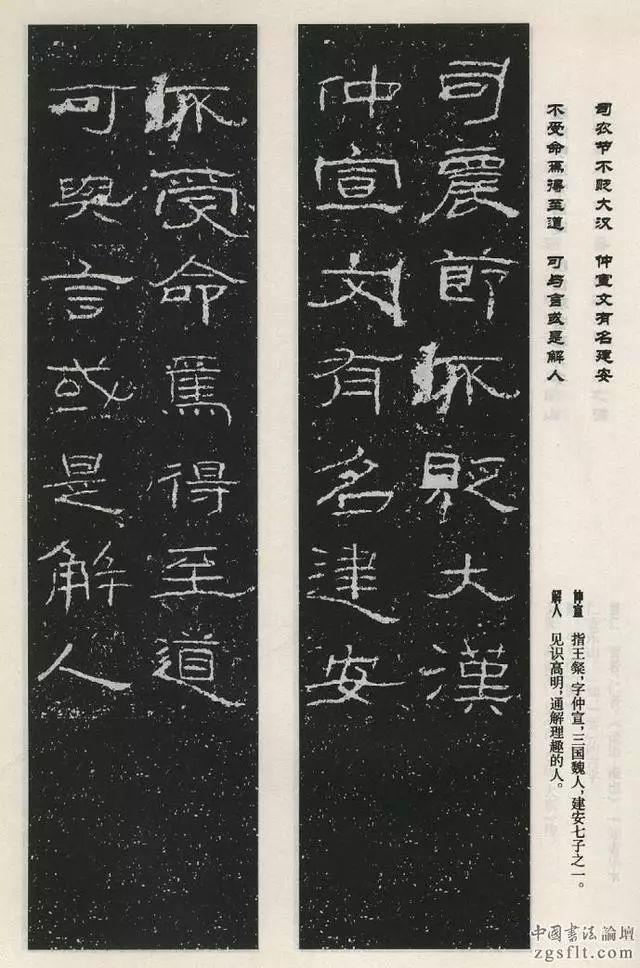 司农节不贬大汉 仲宣文有名建安
不受命焉得至道 可与言或是解人
仲宣 指王粲，字仲宣，三国魏人，建安七子之一。
解人 见识高明，通解理趣的人。
司農節不貶大漢
仲宣文有名建安
不受命焉得至道
可與言或是解人
中國書法論壇
zgsflt.com